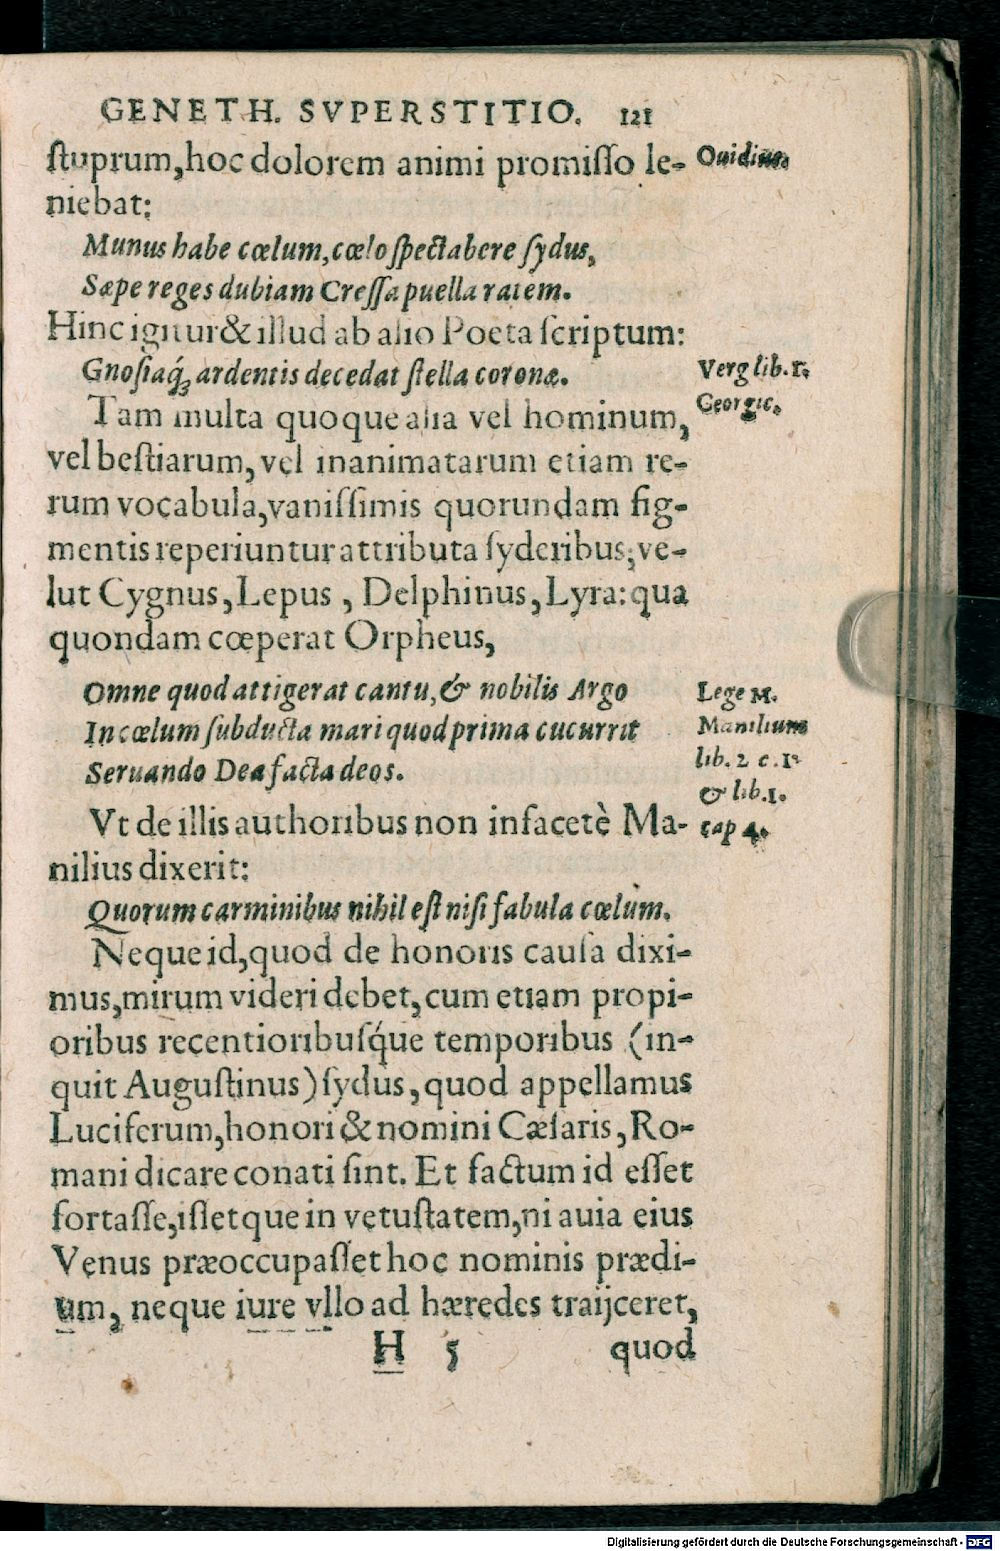 GENETH. SVPERSTITIO. 121
ſtuprum,hoc dolorem animi promiſſo le-
niebat:
Munus habe cœlum,cœlo ſpectabere ſydus,
Sæpe reges dubiam Creſſa puella ratem.
Hinc igitur & illud ab alio Poeta ſcriptum:
Gnoſiaq́ꝫ ardentis decedat ſtella coronæ.
Tam multa quoque alia vel hominum,
vel beſtiarum,vel inanimatarum etiam re-
rum vocabula,vaniſſimis quorundam fig-
mentis reperiuntur attributa ſyderibus;ve-
lut Cygnus,Lepus , Delphinus,Lyra:qua
quondam cœperat Orpheus,
Omne quod attigerat cantu,& nobilis Argo
In cœlum ſubducta mari quod prima cucurrit
Seruando Dea facta deos.
Vt de illis authoribus non infacetè Ma-
nilius dixerit:
Quorum carminibus nihil eſt niſi fabula cœlùm.
Neque id,quod de honoris cauſa dixi-
mus,mirum videri debet,cum etiam propi-
oribus recentioribuſq́ue temporibus (in-
quit Auguſtinus)ſydus,quod appellamus
Luciferum,honori & nomini Cæſaris,Ro-
mani dicare conati ſint. Et factum id eſſet
fortaſſe,iſſetque in vetuſtatem,ni auia eius
Venus præoccupaſſet hoc nominis prædi-
um, neque iure vllo ad hæredes traijceret,
H 5 quod
Ouidius.
Verg lib.1.
Georgic.
Lege M.
Manilium
lib. 2 c .1.
& lib.1.
cap 4.
Digitalisierung gefördert durch die Deutsche Forschungsgemeinschaft - DFG